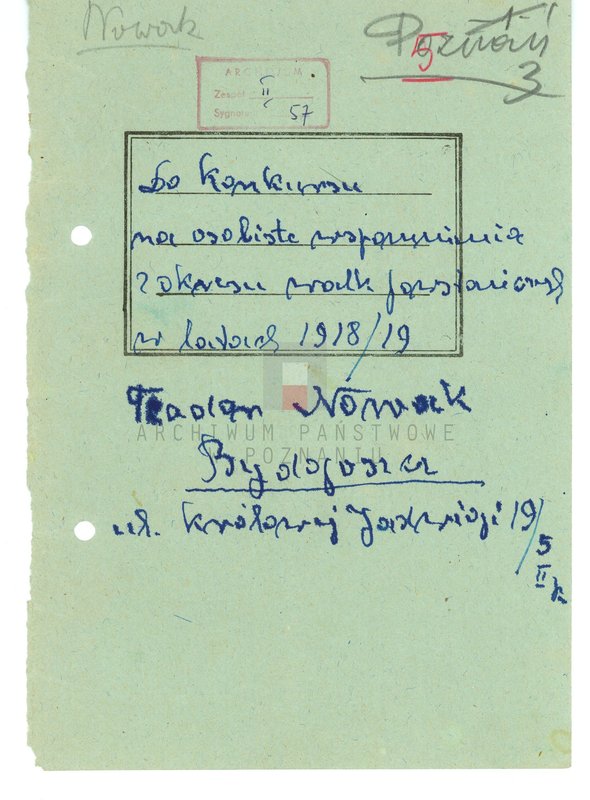 Nowak
Poznań
5
3
ARCHIWUM
Zespół II
Sygnatura 57
Do konkursu
na osobiste wspomnienia
z okresu walk powstańczych
w latach 1918/19
Nowak
ARCHIWUM PAŃSTWOWE
POZNANIU
Bydgoszcz
ul. Królowej Jadwigi 19/
5
II